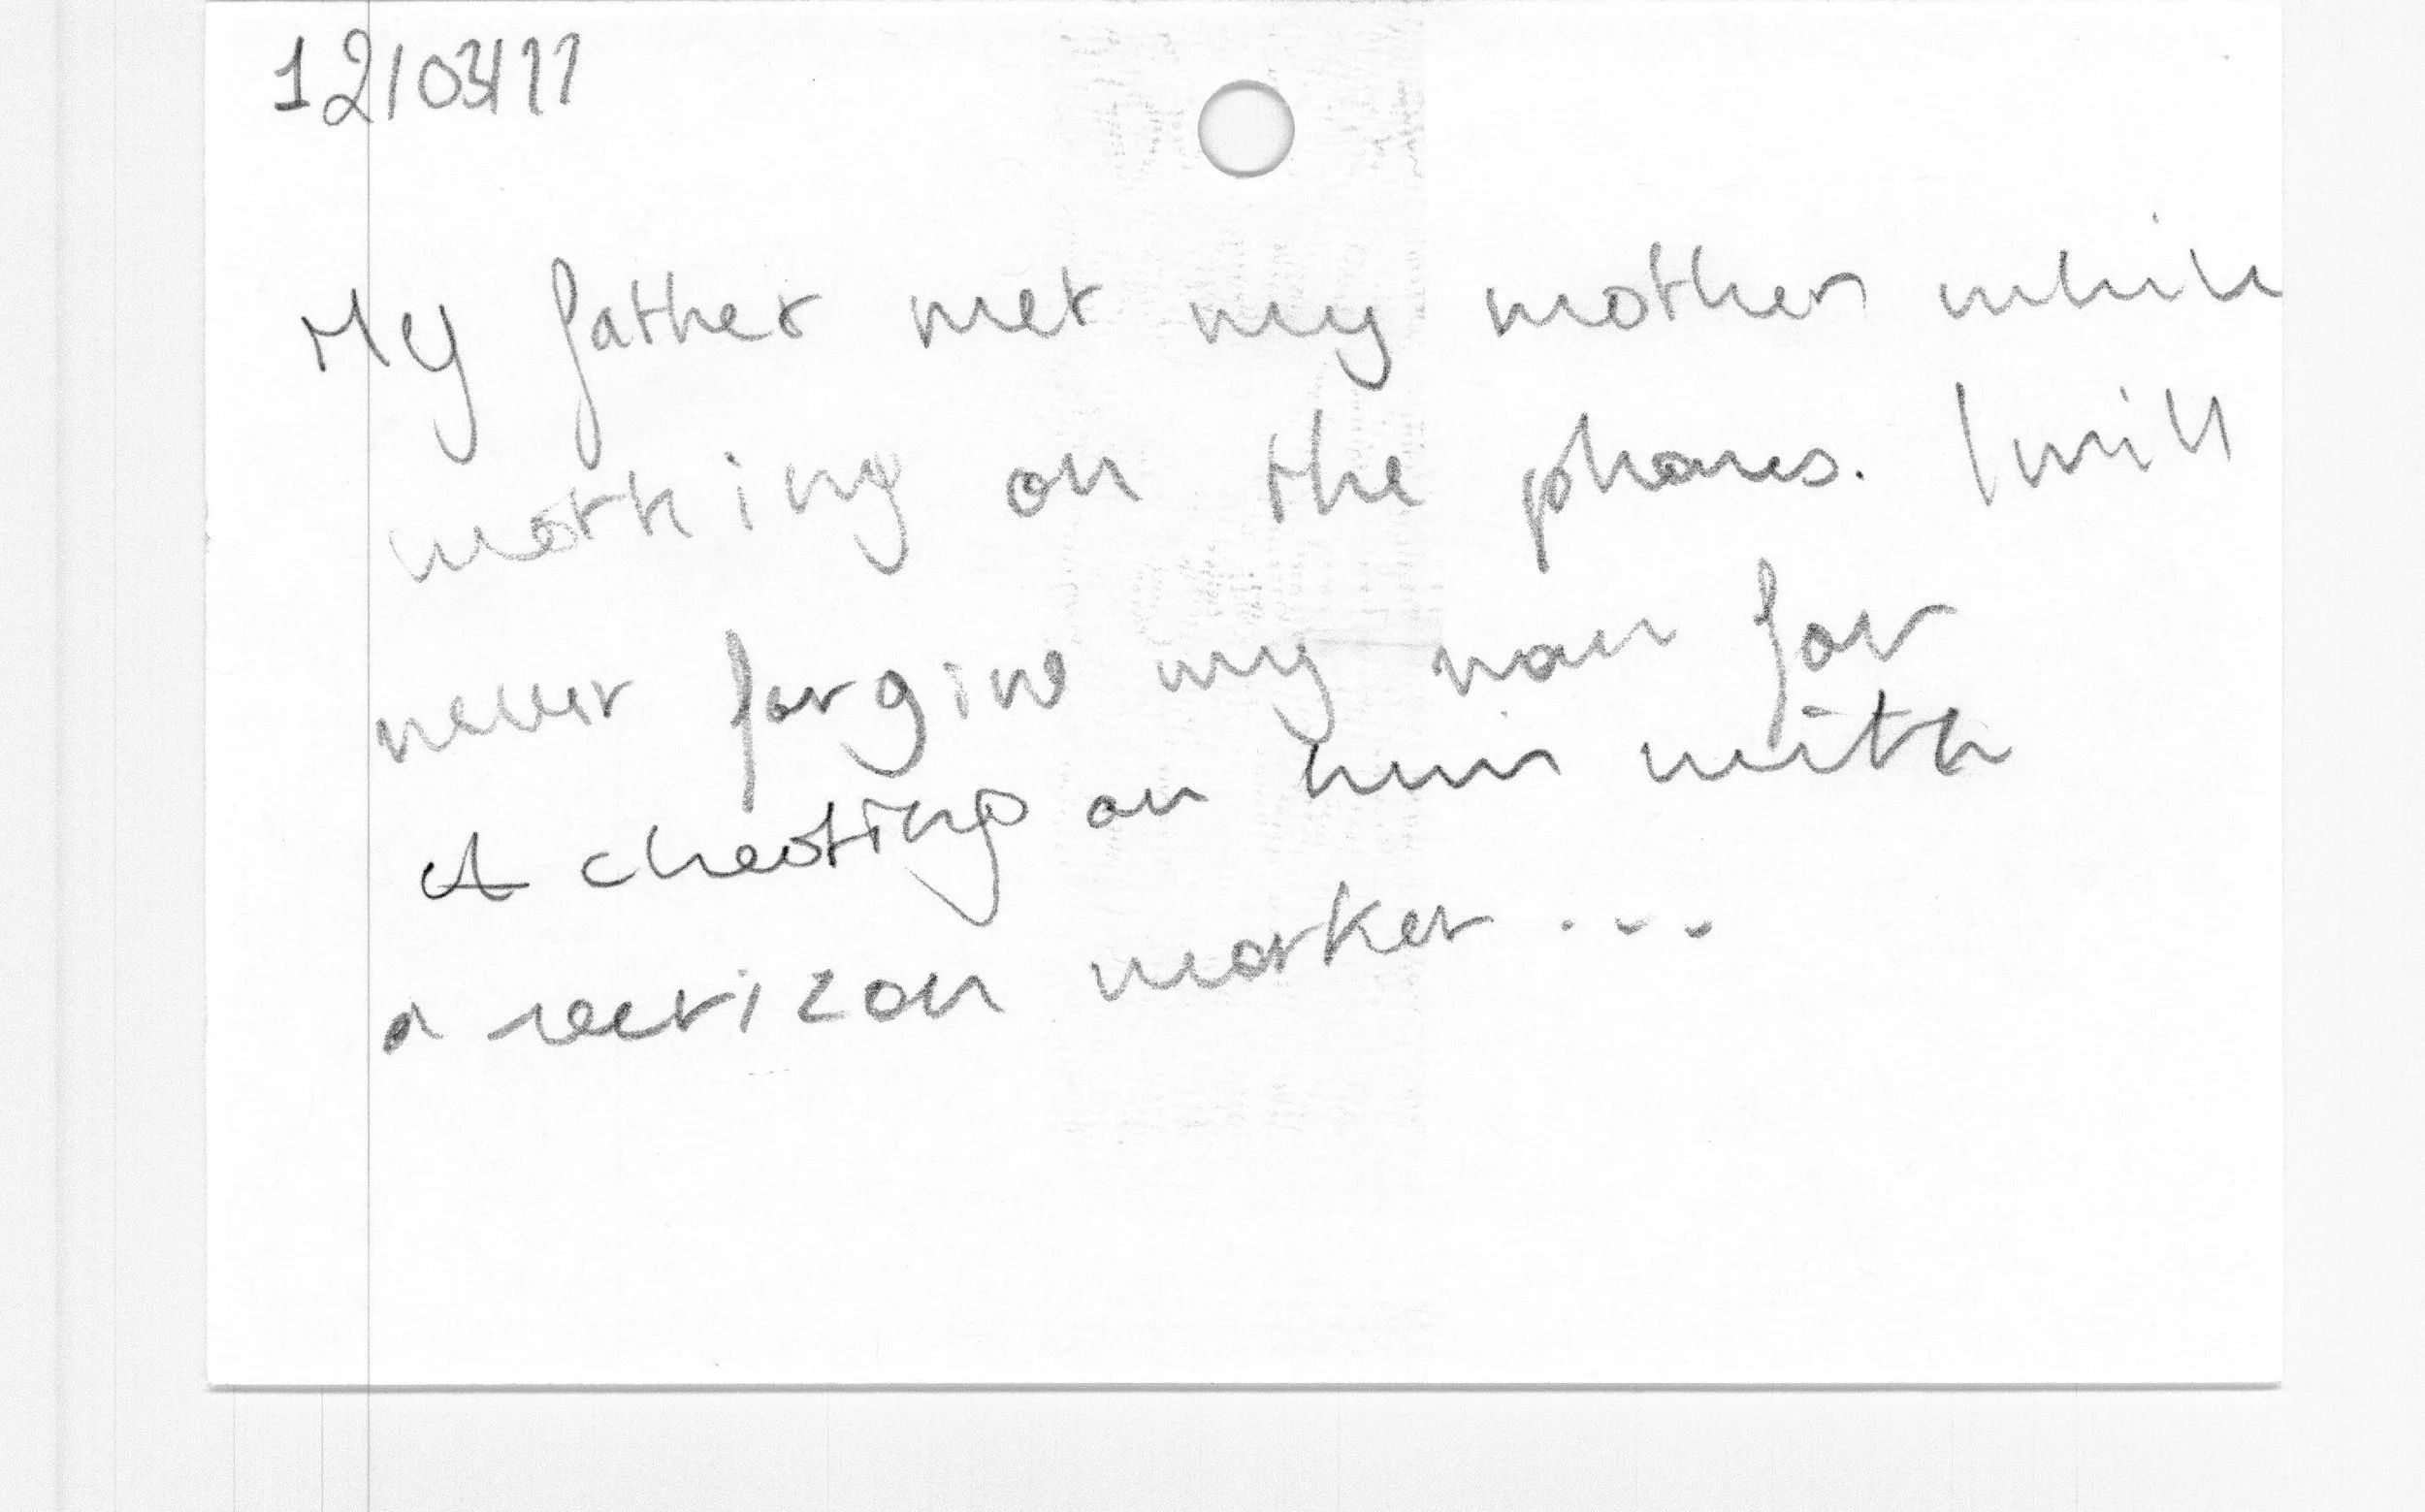 12/03/11
My father met my mother while
working on the phones. I will
never forgive my mom for
cheating on him with
a verizon worker...